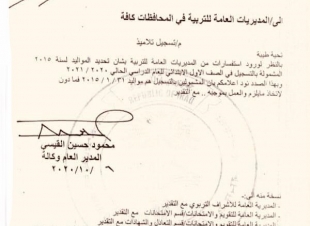 الى/المديريات العامة للتربية في المحافظات كافة
م/تسجيل تلاميذ
تحية طيبة
بالنظر لورود استفسارات من المديريات العامة للتربية بشأن تحديد المواليد لسنة ٢٠١٥
المشمولة بالتسجيل في الصف الاول الابتدائي للعام الدراسي الحالي ٢٠٢٠/ ٢٠٢١
وبهذا الصدد نود اعلامكم بأن المشمولين بالتسجيل هم مواليد ٢٠١٥/١/٣١ فما دون
لاتخاذ مايلزم والعمل بموجبه .. مع التقدير
محمود حسين القيسي
المدير العام وكالة
٢٠٢٠/١٠/٦
نسخة منه الى:
- المديرية العامة للأشراف التربوي مع التقدير
- المديرية العامة للتقويم والامتحانات/قسم الامتحانات مع التقدير
- المديرية العامة للتقويم والامتحانات/قسم التعادل والشهادات مع التقدير